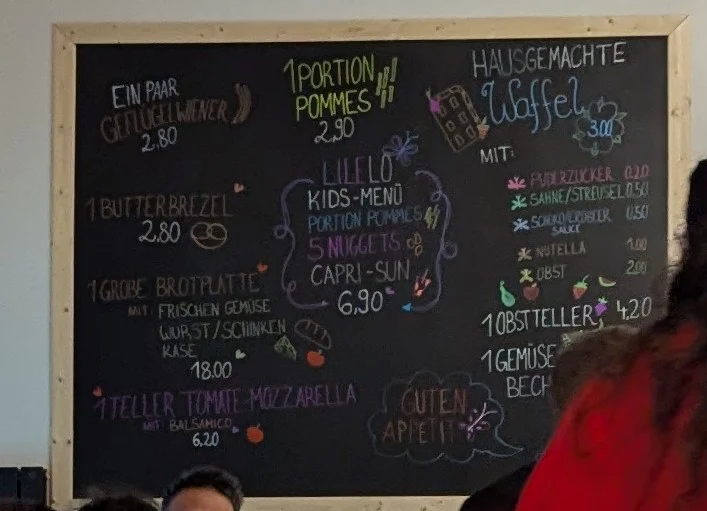 EIN PAAR
GEFLÜGELWIENER
2,80
1 BUTTERBREZEL
2,80
1 GROBE BROTPLATTE
MIT: FRISCHEN GEMÜSE
WURST/SCHINKEN
KÄSE
18,00
1 TELLER TOMATE-MOZZARELLA
MIT BALSAMICO
6,20
1 PORTION
POMMES
2,90
LILELO
KIDS-MENÜ
PORTION POMMES
5 NUGGETS
CAPRI-SUN
6,90
HAUSGEMACHTE
Waffel
3.00
MIT:
PUDERZUCKER 0.20
SAHNE/STREUSEL 0.50
SCHOKO/ERDBEER 0.50
SAUCE
NUTELLA 1.00
OBST 2.00
1 OBSTTELLER 4.20
1 GEMÜSE
BECH
GUTEN
APPETIT